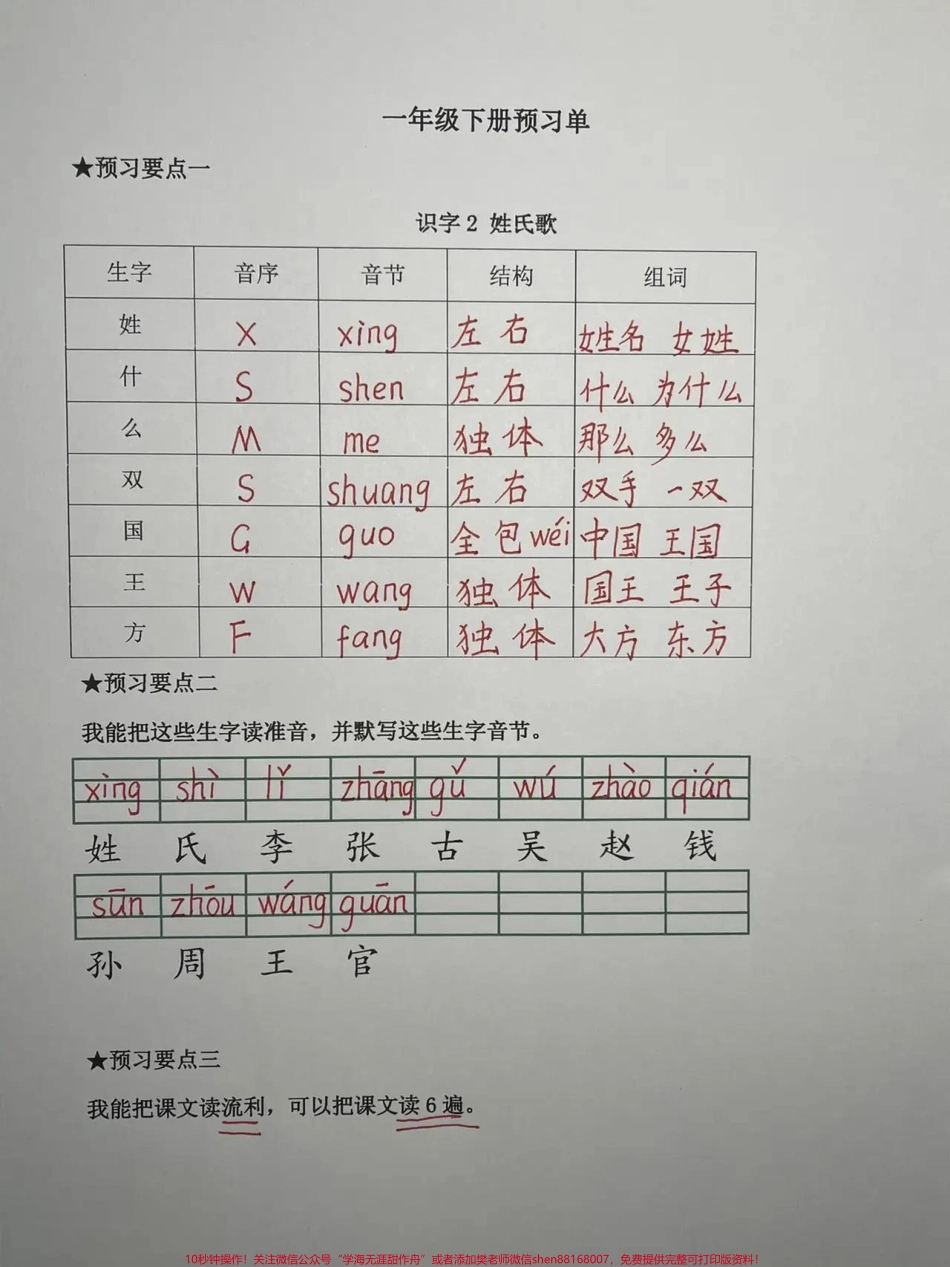 一年级下册预习单
★预习要点一
识字2 姓氏歌
生字 音序 音节 结构 组词
姓 X xìng 左右 姓名 女姓
什 S shen 左右 什么 为什么
么 M me 独体 那么 多么
双 S shuang 左右 双手 一双
国 G guo 全包wéi 中国 王国
王 W wang 独体 国王 王子
方 F fang 独体 大方 东方
★预习要点二
我能把这些生字读准音，并默写这些生字音节。
xìng shì lǐ zhāng gǔ wú zhào qián
姓 氏 李 张 古 吴 赵 钱
sūn zhōu wáng guān
孙 周 王 官
★预习要点三
我能把课文读流利，可以把课文读6遍。
10秒钟操作！关注微信公众号“学海无涯甜作舟”或者添加樊老师微信shen88168007，免费提供完整可打印版资料！